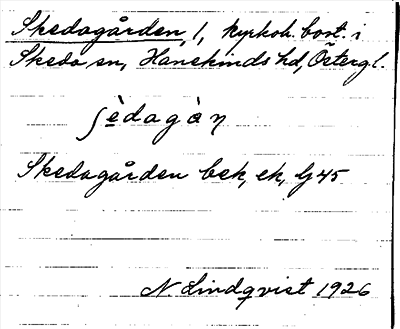 Skedagården, 1, kyrkoh. bost. i
Skeda sn, Hanekinds hd, Östergl.
ʃèdagɑ̀ṇ
Skedagården bek, ek, G 45
N Lindqvist 1926